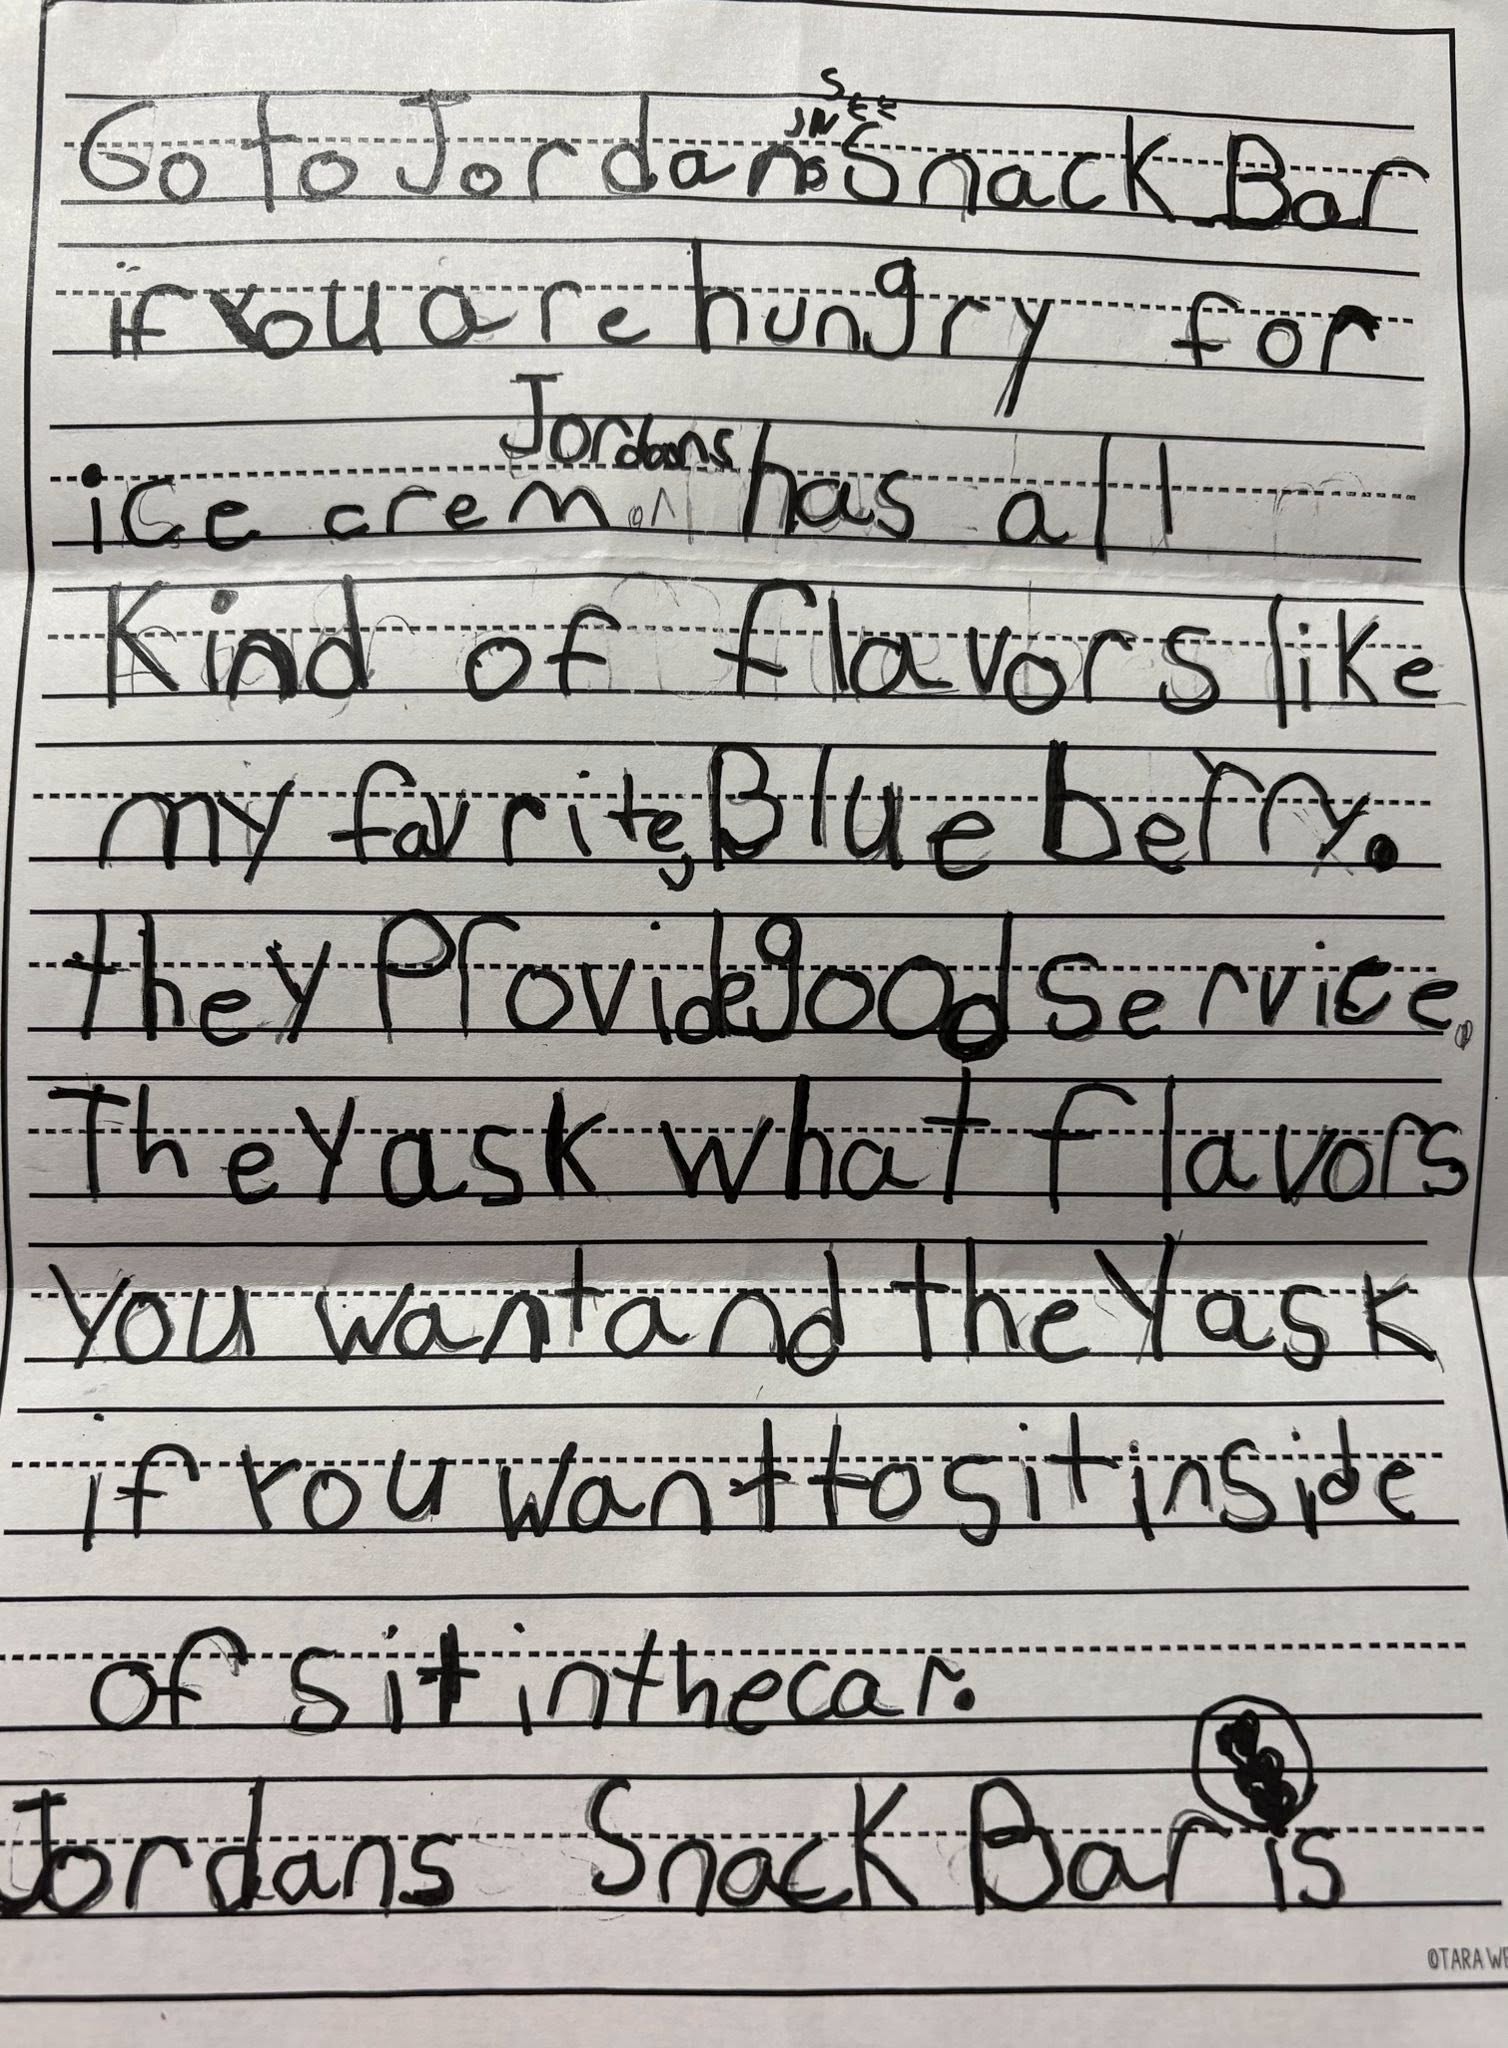 Go to Jordans Snack Bar
if you are hungry for
Jordans
ice crem. has all
Kind of flavors like
my favrite, Blueberry.
they Provide good service.
They ask what flavors
you want and they ask
if you want to sit inside
of sit in the car.
Jordans Snack Bar is
©TARA WE